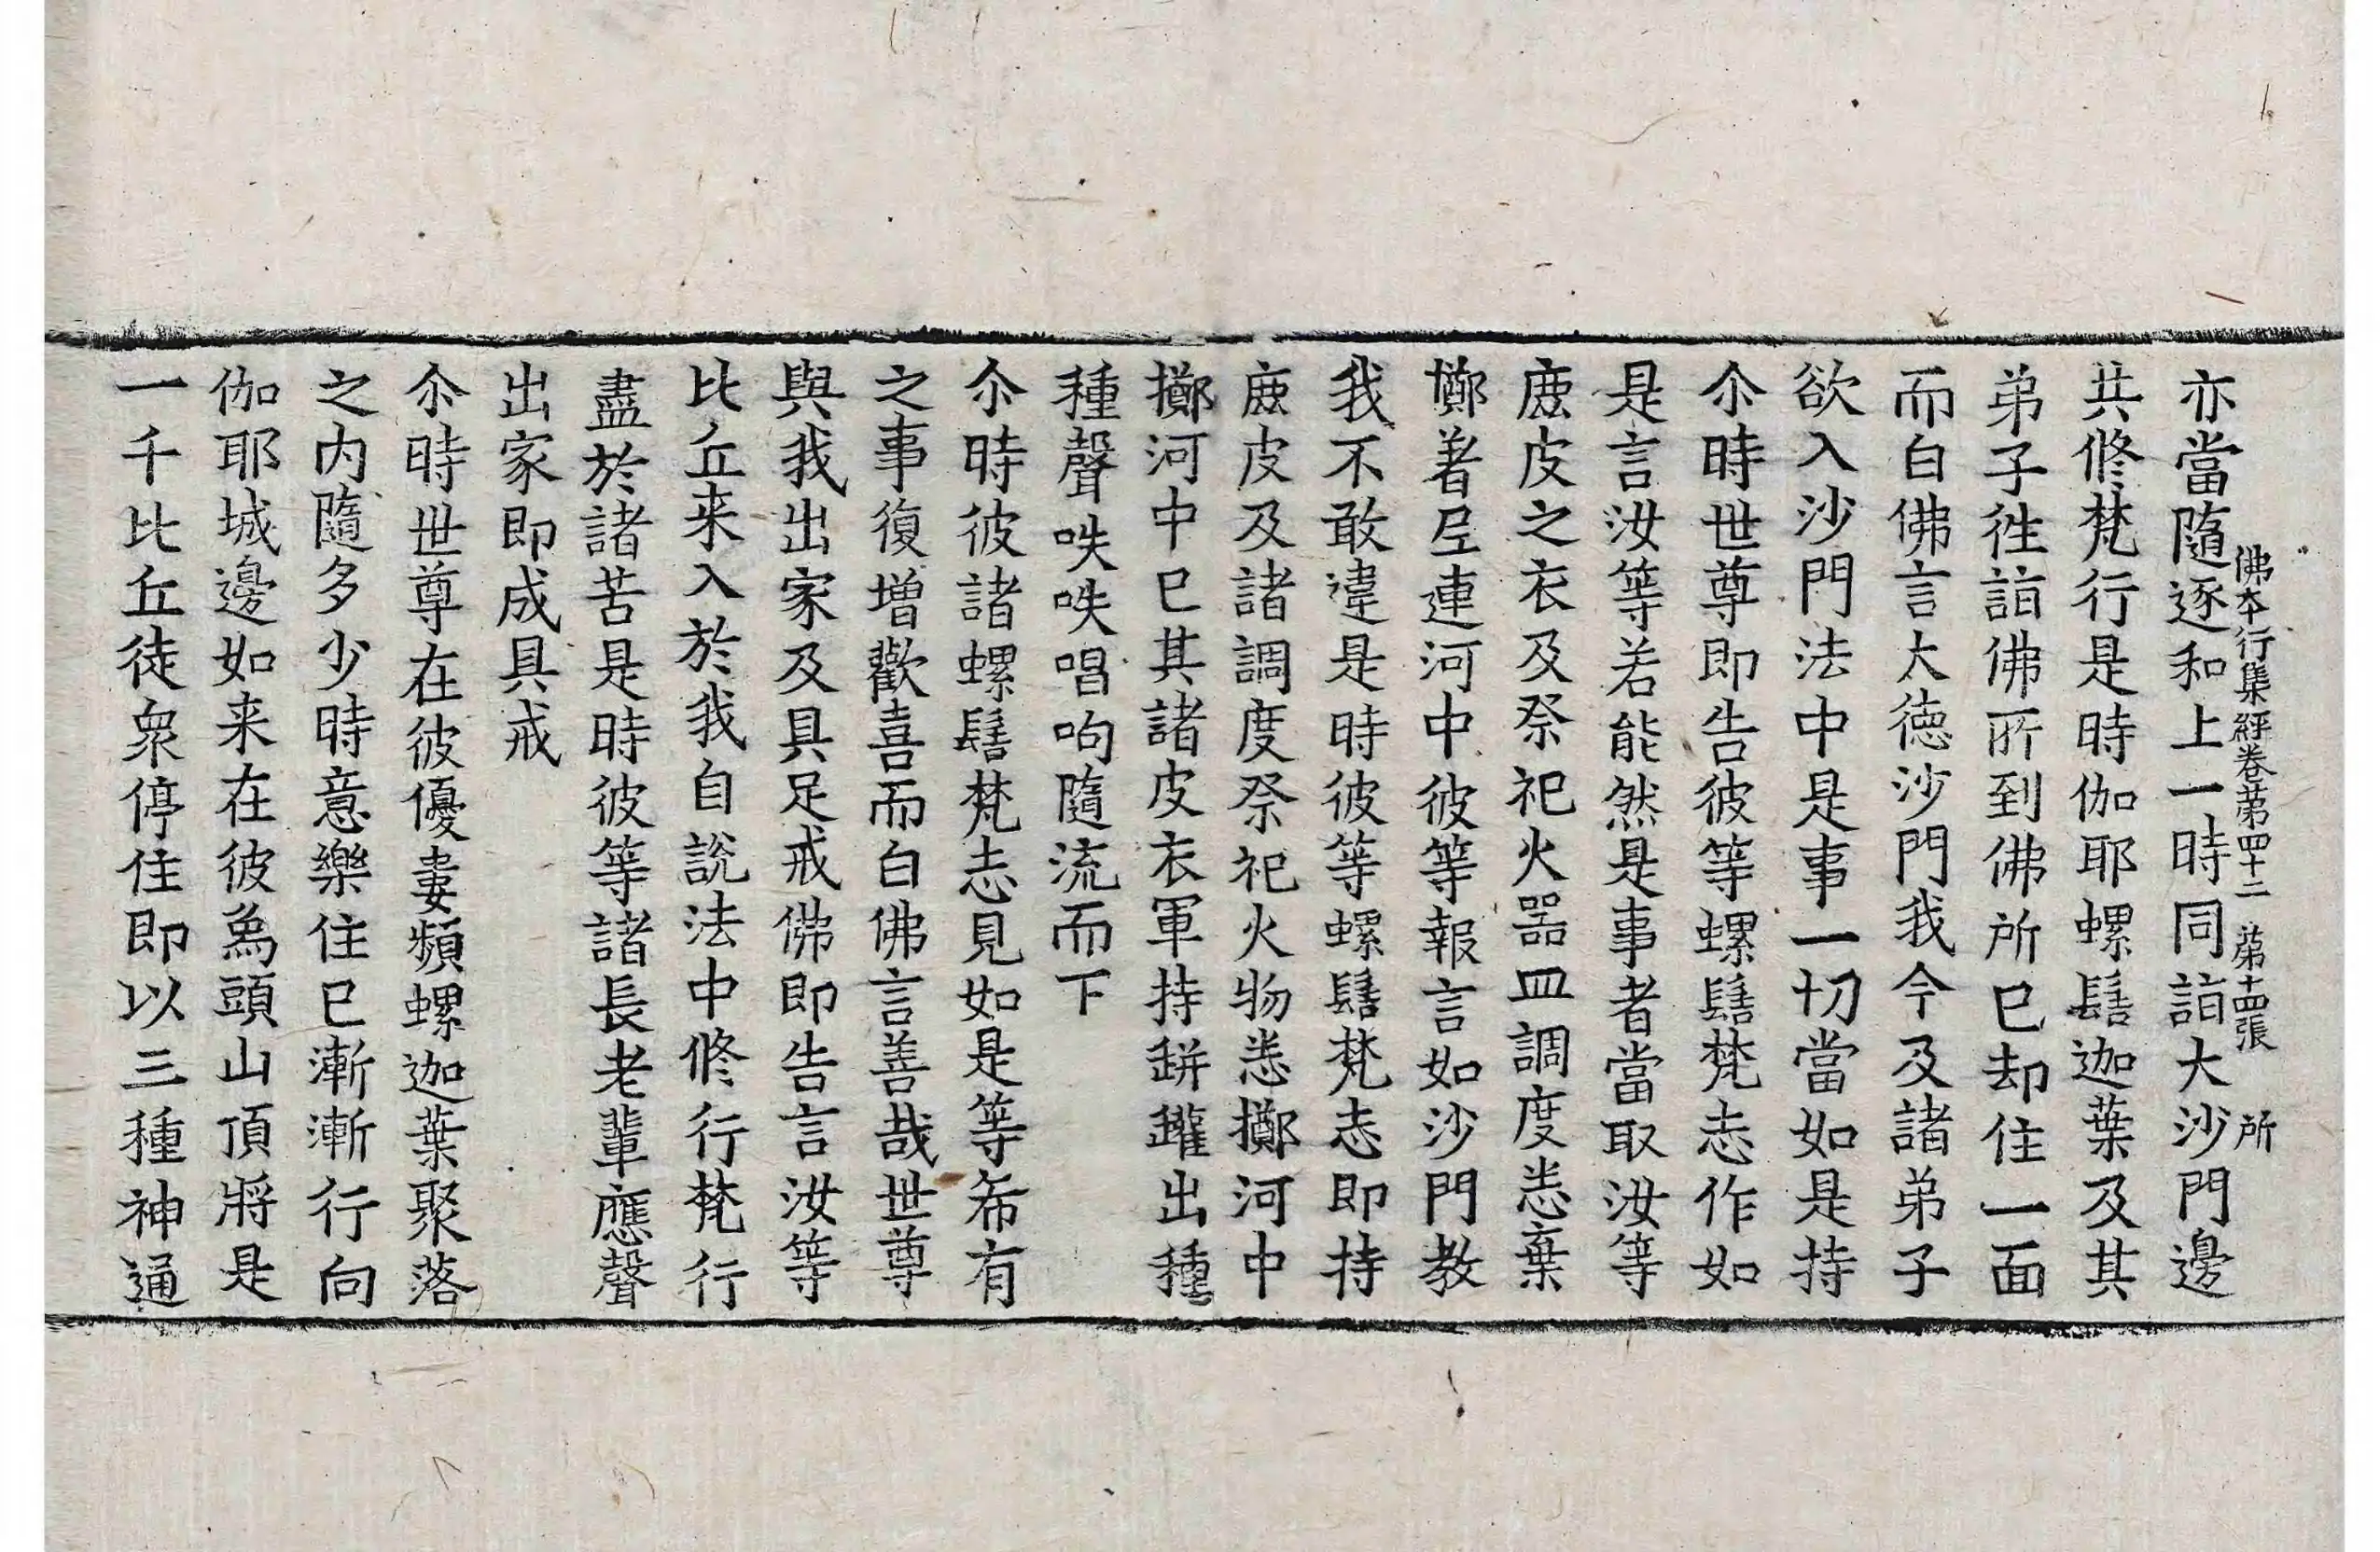 佛本行集經卷第四十二 第十四張 所
亦當隨逐和上一時同詣大沙門邊
共修梵行是時伽耶螺髻迦葉及其
弟子徃詣佛所到佛所已却住一面
而白佛言大德沙門我今及諸弟子
欲入沙門法中是事一切當如是持
尒時世尊即告彼等螺髻梵志作如
是言汝等若能然是事者當取汝等
鹿皮之衣及祭祀火器皿調度悉棄
擲著𡰱連河中彼等報言如沙門教
我不敢違是時彼等螺髻梵志即持
鹿皮及諸調度祭祀火物悉擲河中
擲河中已其諸皮衣軍持缾鑵出種
種聲咉咉唱呴隨流而下
尒時彼諸螺髻梵志見如是等希有
之事復增歡喜而白佛言善哉世尊
與我出家及具足戒佛即告言汝等
比丘来入於我自說法中修行梵行
盡於諸苦是時彼等諸長老輩應聲
出家即成具戒
尒時世尊在彼優婁頻螺迦葉聚落
之内隨多少時意樂住已漸漸行向
伽耶城邊如来在彼爲頭山頂將是
一千比丘徒衆停住即以三種神通